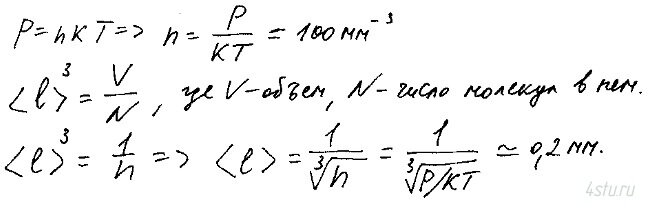 P=nKT=> n = P/KT = 100 мм⁻³
<l>³ = V/N, где V-объем, N-число молекул в нем.
<l>³ = 1/n => <l> = 1/∛n = 1/∛(P/KT) ≃ 0,2 мм.
4stu.ru